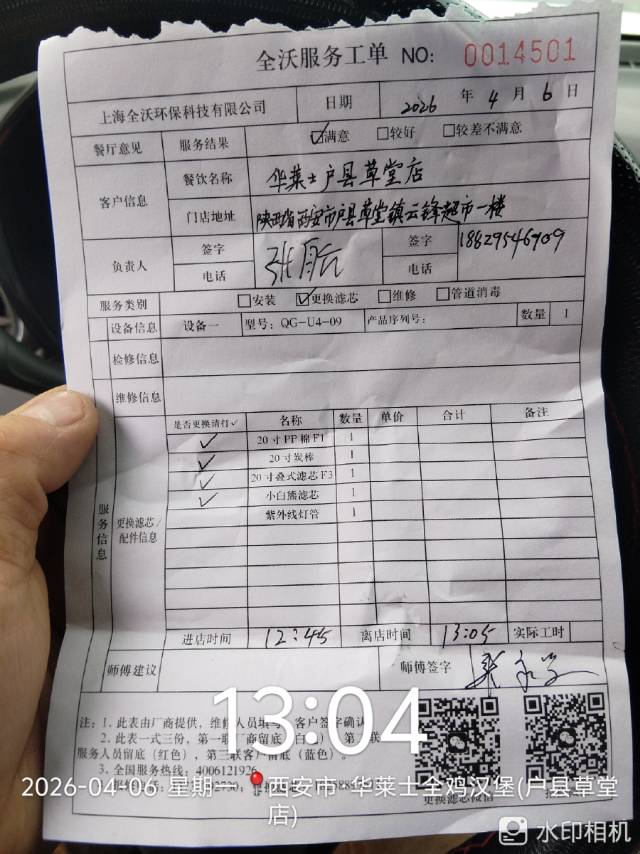 全沃服务工单 NO: 0014501
上海全沃环保科技有限公司 日期 2026 年 4 月 6 日
餐厅意见 服务结果 ☑满意 □较好 □较差不满意
客户信息 餐饮名称 华莱士户县草堂店
门店地址 陕西省西安市户县草堂镇云锋超市一楼
负责人 签字 签字
电话 电话 18829546909
服务类别 □安装 ☑更换滤芯 □维修 □管道消毒
设备信息 设备一 型号: QG-U4-09 产品序列号: 数量 1
检修信息
维修信息
服务信息 更换滤芯/配件信息
是否更换请打✓ 名称 数量 单价 合计 备注
✓ 20寸PP棉F1 1
✓ 20寸炭棒 1
✓ 20寸叠式滤芯F3 1
✓ 小白熊滤芯 1
紫外线灯管 1
进店时间 12:45 离店时间 13:05 实际工时
师傅建议 师傅签字
注: 1. 此表由厂商提供, 维修人员填 客户签字确认
2. 此表一式三份, 第一联厂商留底 白
服务人员留底 (红色), 第三联客户留底 (蓝色)。
3. 全国服务热线: 4006121926
更换滤芯微信
13:04
2026-04-06 星期一 西安市·华莱士全鸡汉堡(户县草堂店)
水印相机